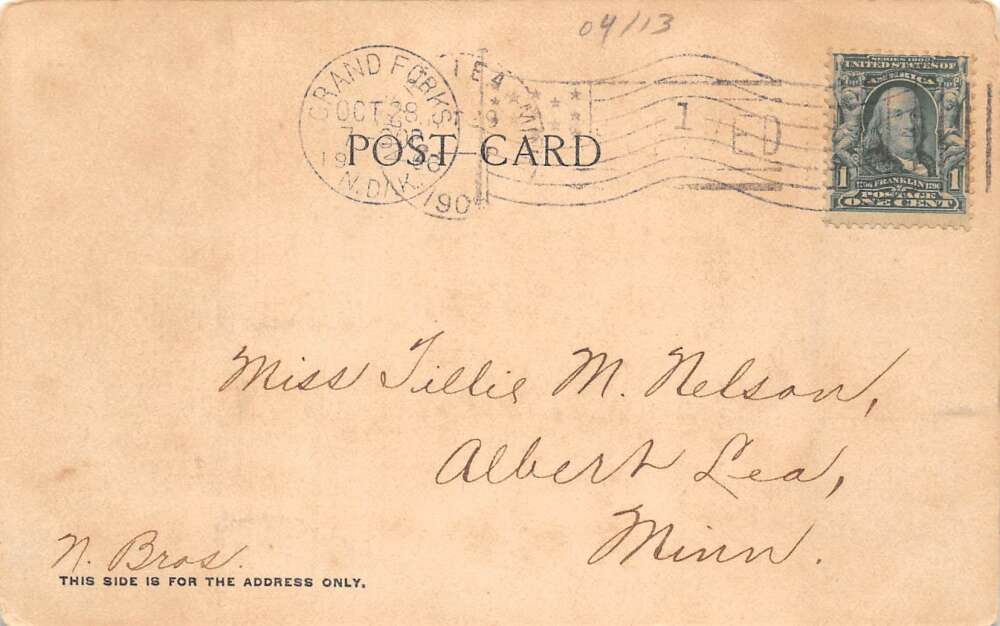 04/13
GRAND FORKS
OCT 28
N. DAK.
190
1
POST CARD
SERIES 1902
UNITED STATES OF
AMERICA
1 1706 FRANKLIN 1790 1
POSTAGE
ONE CENT
Miss Tillie M. Nelson,
Albert Lea,
Minn.
N. Bros.
THIS SIDE IS FOR THE ADDRESS ONLY.